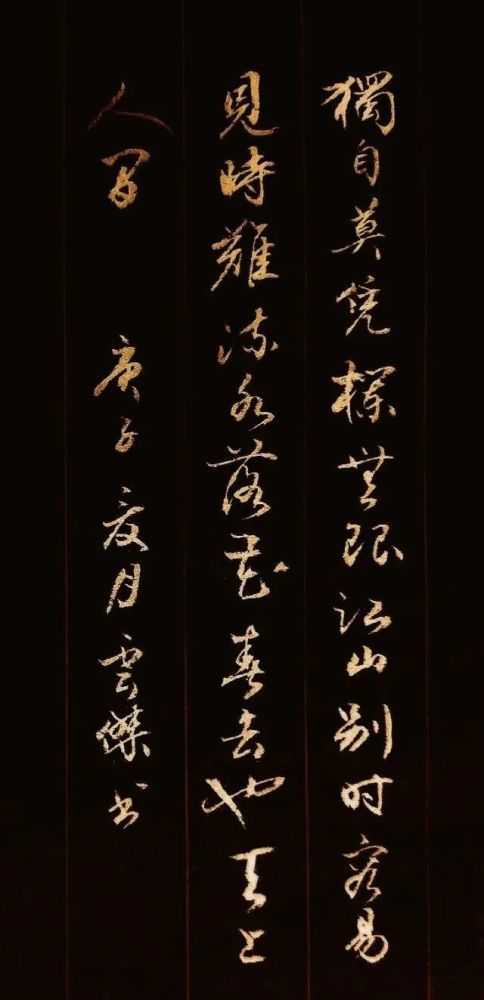 獨自莫凭欄無限江山别时容易
見時難流水落花春去也天上
人間 庚子夏月雲傑書